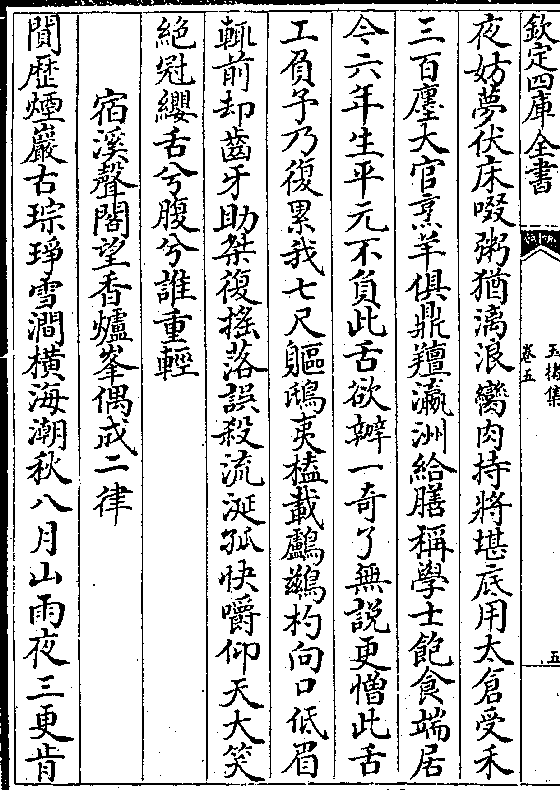 欽定四庫全書
玉楮集
卷五
五
夜妨夢伏床啜粥猶漓浪臠肉持將堪底用太倉受禾
三百廛大官烹羊俱鼎羶瀛洲給膳稱學士飽食端居
今六年生平元不負此舌欲辨一奇了無說更憎此舌
工負予乃復累我七尺軀鴟夷榼載鸕鶿杓向口低眉
輒前却齒牙助桀復搖落誤殺流涎孤快嚼仰天大笑
絶冠纓舌兮腹兮誰重輕
宿溪聲閣望香爐峯偶成二律
閱歷煙巖古琮琤雪澗橫海潮秋八月山雨夜三更肯